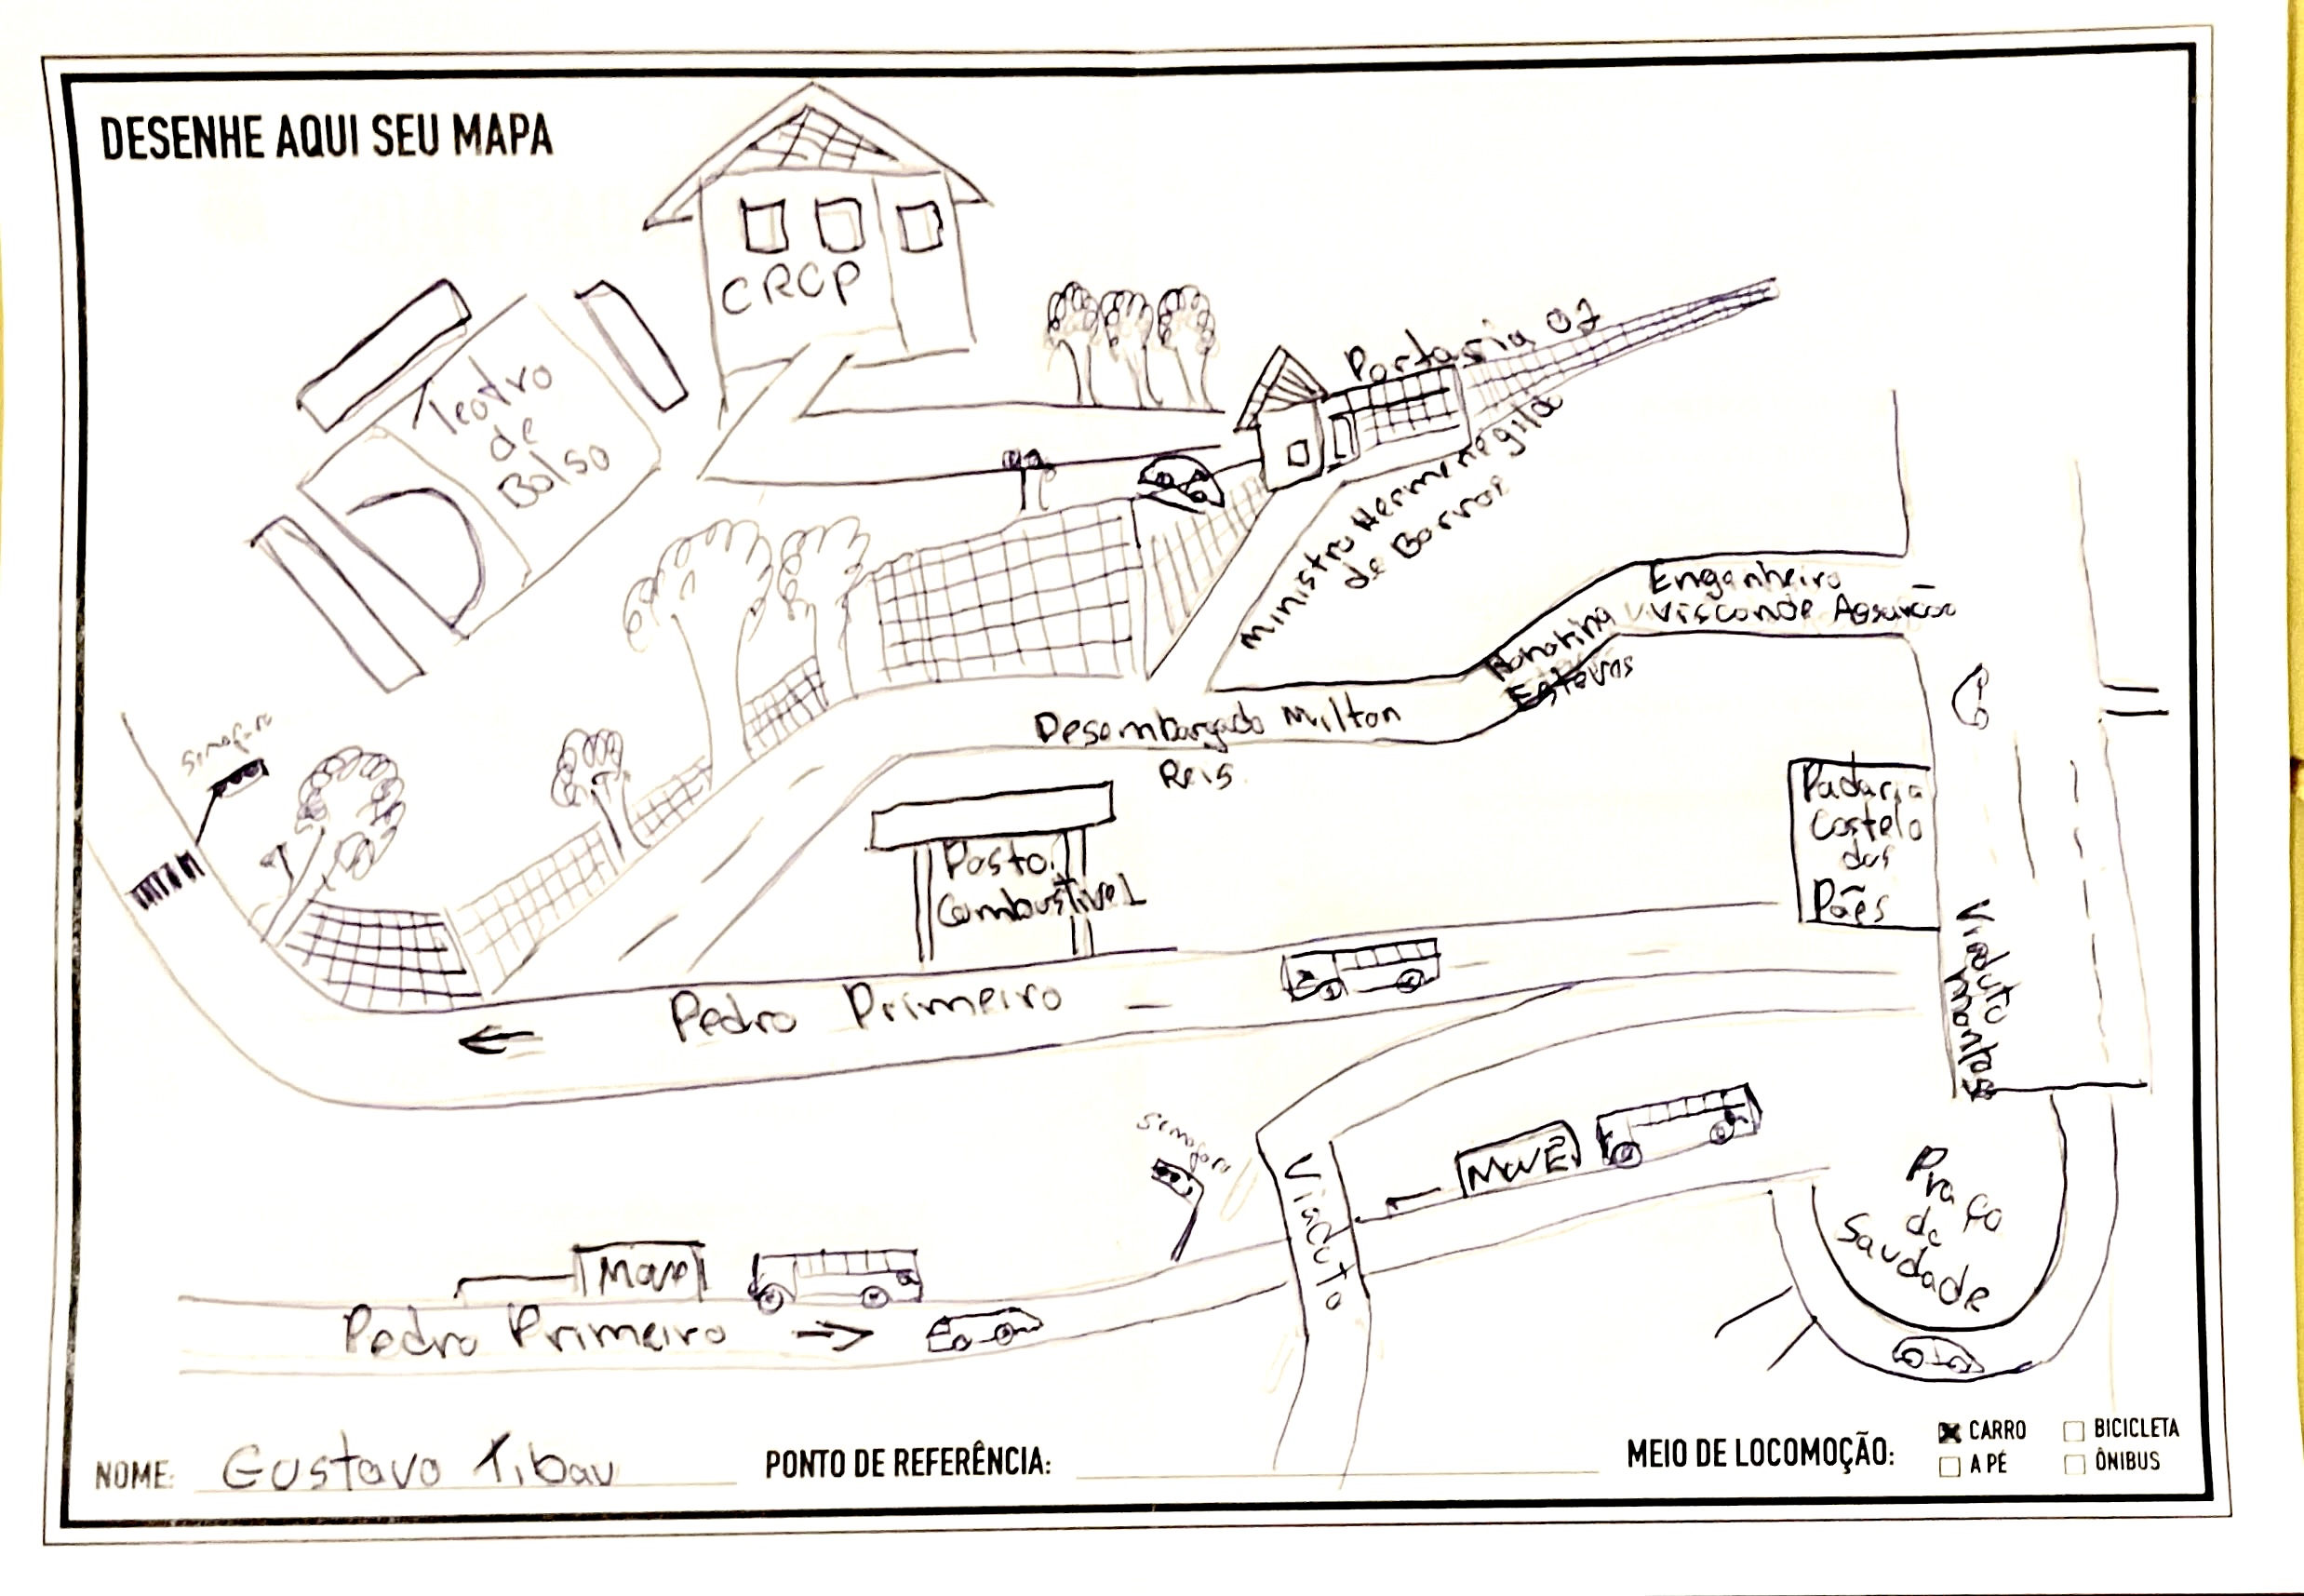 DESENHE AQUI SEU MAPA
CRCP
Teatro
de
Bolso
Portaria 07
Ministro Hermenegild
de Barros
Engenheiro
Visconde
Honorina
Esteves
Desembargado Milton
Reis
Simafaro
Posto
Combustivel
Padaria
Castelo
dos
Pães
Viaduto
Pedro Primeiro
Simafaro
Viaduto
MOVE
Praça
da
Saudade
Move
Pedro Primeiro
NOME: Gustavo Tibau
PONTO DE REFERÊNCIA:
MEIO DE LOCOMOÇÃO:
CARRO
BICICLETA
A PÉ
ÔNIBUS